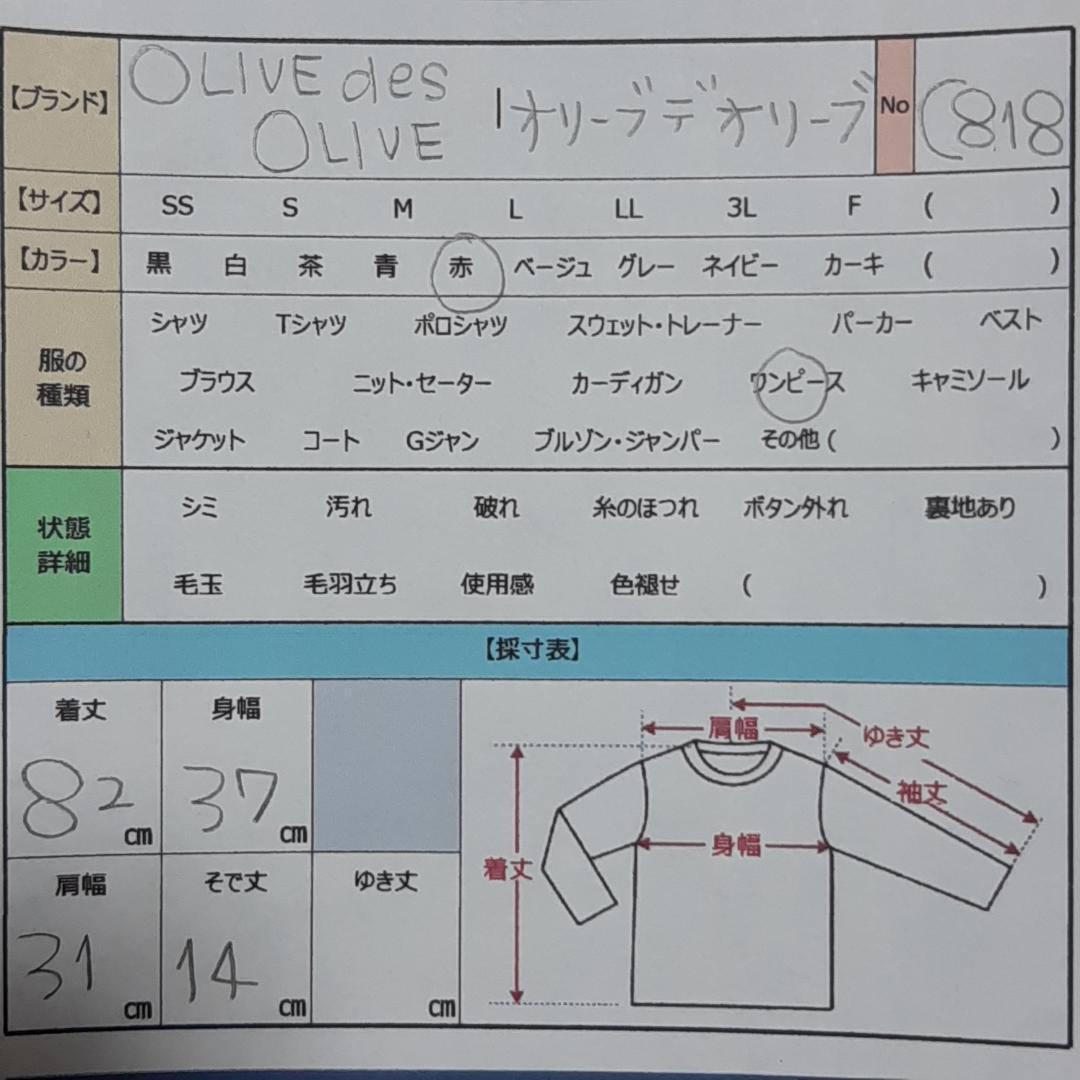 【ブランド】 OLIVE des OLIVE | オリーブデオリーブ No (818
【サイズ】 SS S M L LL 3L F ( )
【カラー】 黒 白 茶 青 赤 ベージュ グレー ネイビー カーキ ( )
服の種類
シャツ Tシャツ ポロシャツ スウェット・トレーナー パーカー ベスト
ブラウス ニット・セーター カーディガン ワンピース キャミソール
ジャケット コート Gジャン ブルゾン・ジャンパー その他 ( )
状態詳細
シミ 汚れ 破れ 糸のほつれ ボタン外れ 裏地あり
毛玉 毛羽立ち 使用感 色褪せ ( )
【採寸表】
着丈 身幅
82 cm 37 cm
肩幅 そで丈 ゆき丈
31 cm 14 cm cm
肩幅
ゆき丈
袖丈
身幅
着丈